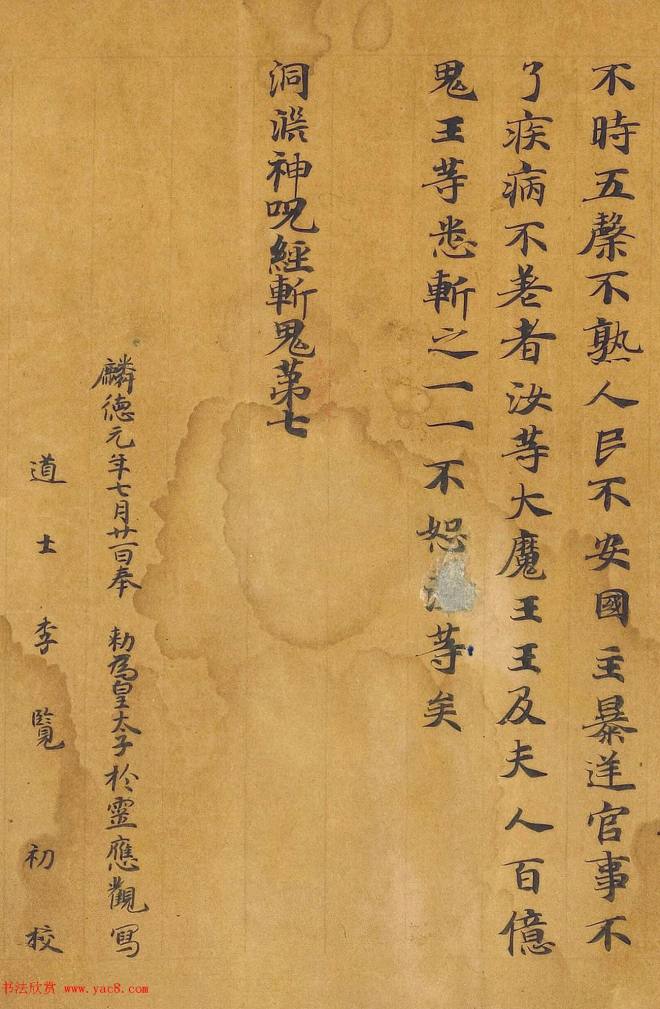 不時五槃不熟人民不安國主暴逆官事不
了疾病不差者汝等大魔王王及夫人百億
鬼王等悉斬之一一不恕等矣
洞淵神呪經斬鬼第七
麟德元年七月廿一日奉 勅為皇太子於靈應觀寫
道士李覽初校
书法欣赏 www.yac8.com